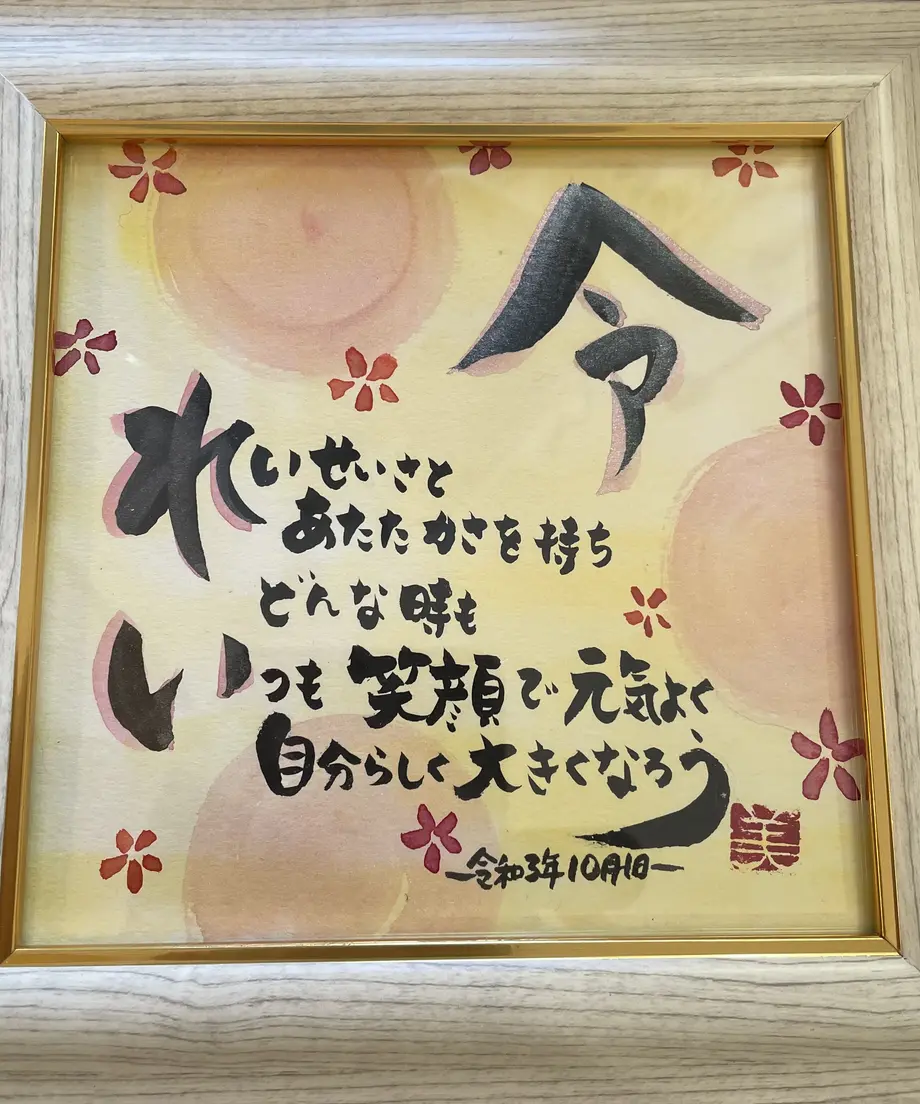 令
れいせいさと
あたたかさを持ち
どんな時も
いつも笑顔で元気よく
自分らしく大きくなろう
―令和3年10月1日―
美